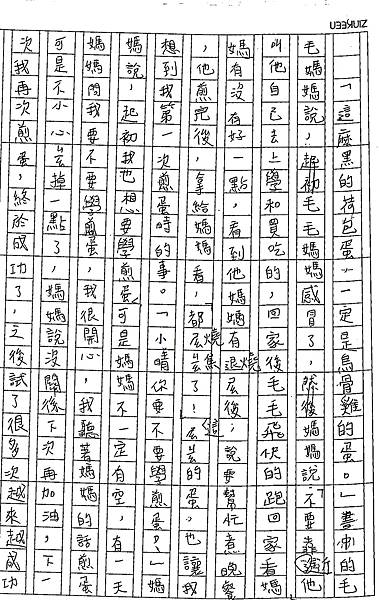 「這麼黑的荷包蛋,一定是烏骨雞的蛋。」書中的毛
毛媽媽說,起初毛毛媽媽感冒了,然後媽媽說不要靠近他
叫他自己去上學和買吃的,回家後,毛毛飛快的跑回家看
媽有沒有好一點,看到他的媽媽有退燒後,說要幫忙煮晚餐
,他煎完後,拿給媽媽看,「都燒焦了!」這 的蛋,也讓我
想到我第一次煎蛋時的事。「小晴你要不要學煎蛋?」媽
媽說起初我也想要學煎蛋,可是媽媽不一定有空,有一天
媽媽問我要不要學煎蛋,我很開心,我聽著媽媽的話煎蛋
可是不小心去掉一點了,媽媽說沒關係下次再加油,下一
次我再次煎蛋,終於成功了,之後試了很多次越來越成功